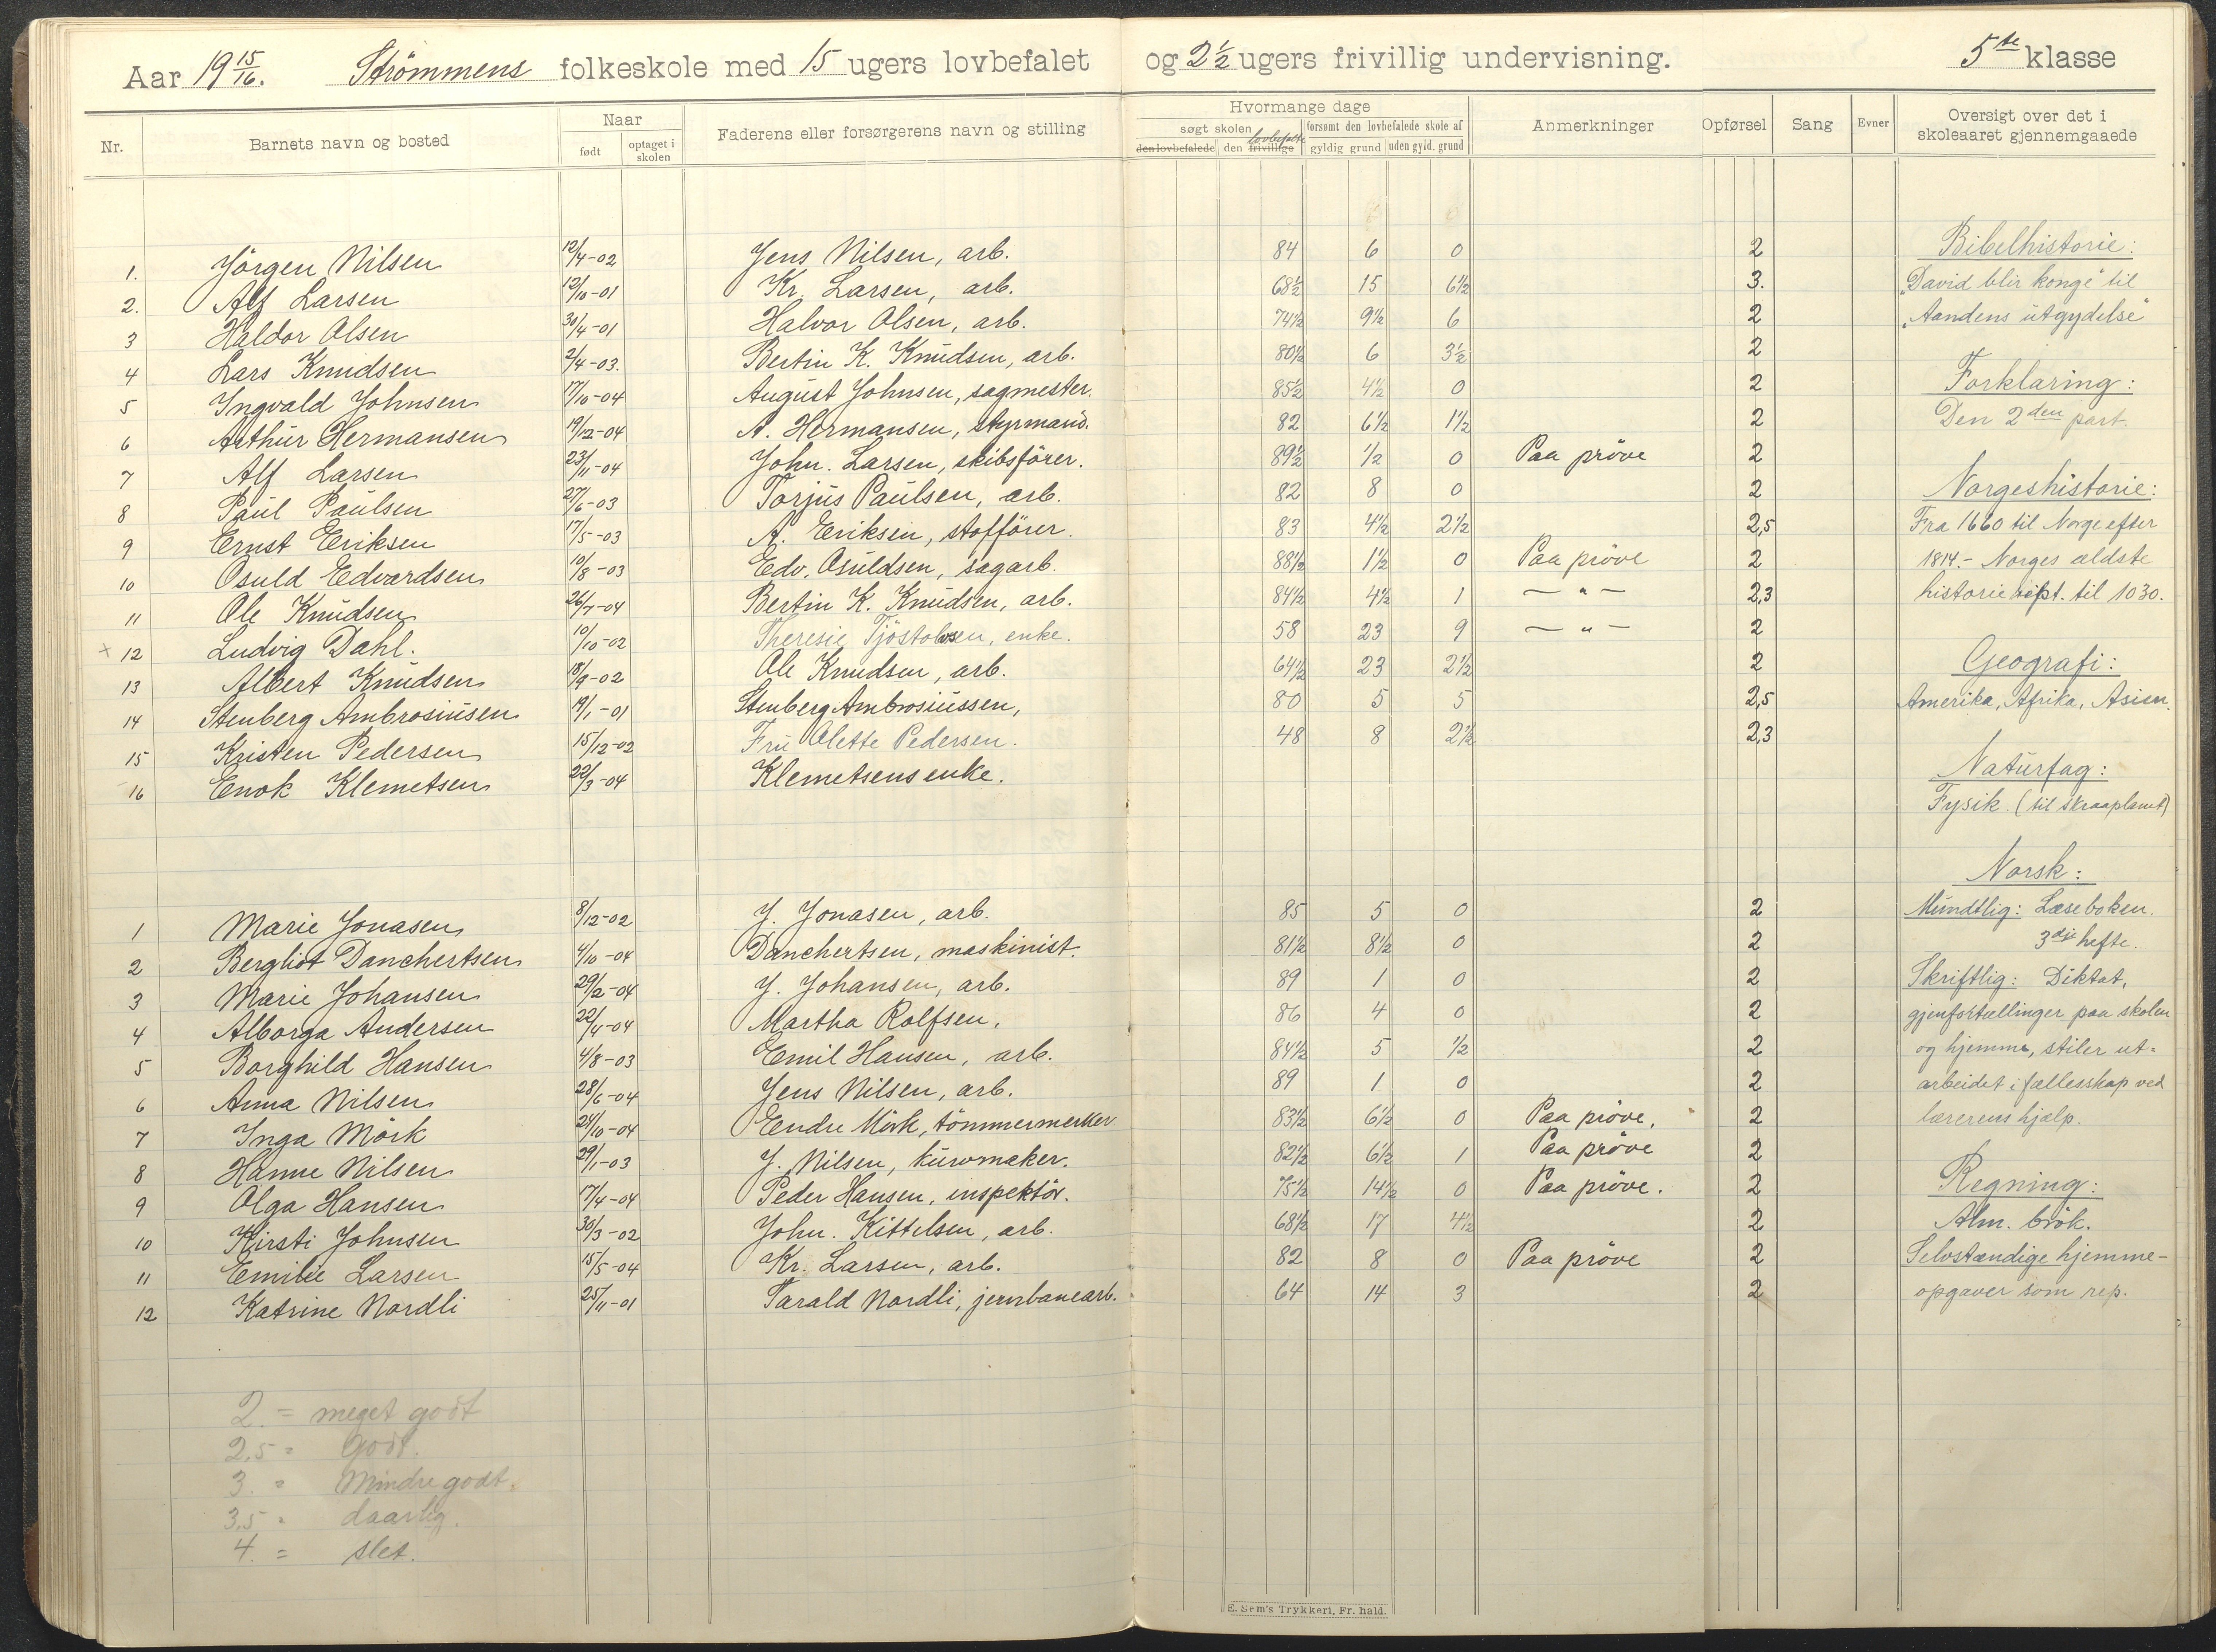 Aar 19 15/16. Strömmens folkeskole med 15 ugers lovbefalet og 2 1/2 ugers frivillig undervisning. 5te klasse
Nr. Barnets navn og bosted Naar født optaget i skolen Faderens eller forsørgerens navn og stilling Hvormange dage søgt skolen den lovbefalede den frivillige lovbefalte forsømt den lovbefalede skole af gyldig grund uden gyld. grund Anmerkninger Opførsel Sang Evner Oversigt over det i skoleaaret gjennemgaaede
1. Jörgen Nilsen 12/4-02 Jens Nilsen, arb. 84 6 0 2
2. Alf Larsen 12/10-01 Kr. Larsen, arb. 68 1/2 15 6 1/2 3.
3 Haldor Olsen 30/4-01 Halvor Olsen, arb. 74 1/2 9 1/2 6 2
4 Lars Knudsen 2/4-03. Bertin K. Knudsen, arb. 80 1/2 6 3 1/2 2
5 Ingvald Johnsen 17/10-04 August Johnsen, sagmester. 85 1/2 4 1/2 0 2
6 Arthur Hermansen 19/12-04 A. Hermansen, styrmand. 82 6 1/2 1 1/2 2
7 Alf Larsen 23/11-04 John. Larsen, skibsförer. 89 1/2 1/2 0 Paa pröve 2
8 Paul Paulsen 27/6-03 Torjus Paulsen, arb. 82 8 0 2
9 Ernst Eriksen 17/5-03 A. Eriksen, stofförer. 83 4 1/2 2 1/2 2,5
10 Osuld Edvardsen 10/8-03 Edv. Osuldsen, sagarb. 88 1/2 1 1/2 0 Paa pröve 2
11 Ole Knudsen 26/7-04 Bertin K. Knudsen, arb. 84 1/2 4 1/2 1 — " — 2,3
+ 12 Ludvig Dahl. 10/10-02 Theresie Tjöstolvsen, enke. 58 23 9 — " — 2
13 Albert Knudsen 18/9-02 Ole Knudsen, arb. 64 1/2 23 2 1/2 2
14 Stenberg Ambrosiusen 19/1-01 Stenberg Ambrosiussen, 80 5 5 2,5
15 Kristen Pedersen 15/12-02 Fru Olette Pedersen. 48 8 2 1/2 2,3
16 Enok Klemetsen 22/3-04 Klemetsens enke.
1 Marie Jonasen 8/12-02 J. Jonasen, arb. 85 5 0 2
2 Bergliot Danchertsen 4/10-04 Danchertsen, maskinist. 81 1/2 8 1/2 0 2
3 Marie Johansen 29/2-04 J. Johansen, arb. 89 1 0 2
4 Alborga Andersen 22/4-04 Martha Rolfsen. 86 4 0 2
5 Borghild Hansen 4/8-03 Emil Hansen, arb. 84 1/2 5 1/2 2
6 Anna Nilsen 28/6-04 Jens Nilsen, arb. 89 1 0 2
7 Inga Mörk 24/10-04 Endre Mörk, tömmermerker 83 1/2 6 1/2 0 Paa pröve. 2
8 Hanne Nilsen 29/1-03 J. Nilsen, kurvmaker. 82 1/2 6 1/2 1 Paa pröve 2
9 Olga Hansen 17/4-04 Peder Hansen, inspektör. 75 1/2 14 1/2 0 Paa pröve. 2
10 Kirsti Johnsen 30/3-02 John. Kittelsen, arb. 68 1/2 17 4 1/2 2
11 Emilie Larsen 15/5-04 Kr. Larsen, arb. 82 8 0 Paa pröve 2
12 Katrine Nordli 25/11-01 Tarald Nordli, jernbanearb. 64 14 3 2
2. = meget godt
2,5 = Godt.
3. = Mindre godt.
3,5 = daarlig.
4. = slet.
Bibelhistorie:
"David blir konge" til
"Aandens utgydelse"
Forklaring:
Den 2den part.
Norgeshistorie:
Fra 1660 til Norge efter
1814.- Norges ældste
historie rept. til 1030.
Geografi:
Amerika, Afrika, Asien.
Naturfag:
Fysik. (til skraaplanet)
Norsk:
Mundtlig: Læseboken.
3dje hefte.
Skriftlig: Diktat,
gjenfortællinger paa skolen
og hjemme, stiler ut-
arbeidet i fællesskap ved
lærerens hjælp.
Regning:
Alm. brök.
Selvstændige hjemme-
opgaver som rep.
E. Sem's Trykkeri, Fr. hald.